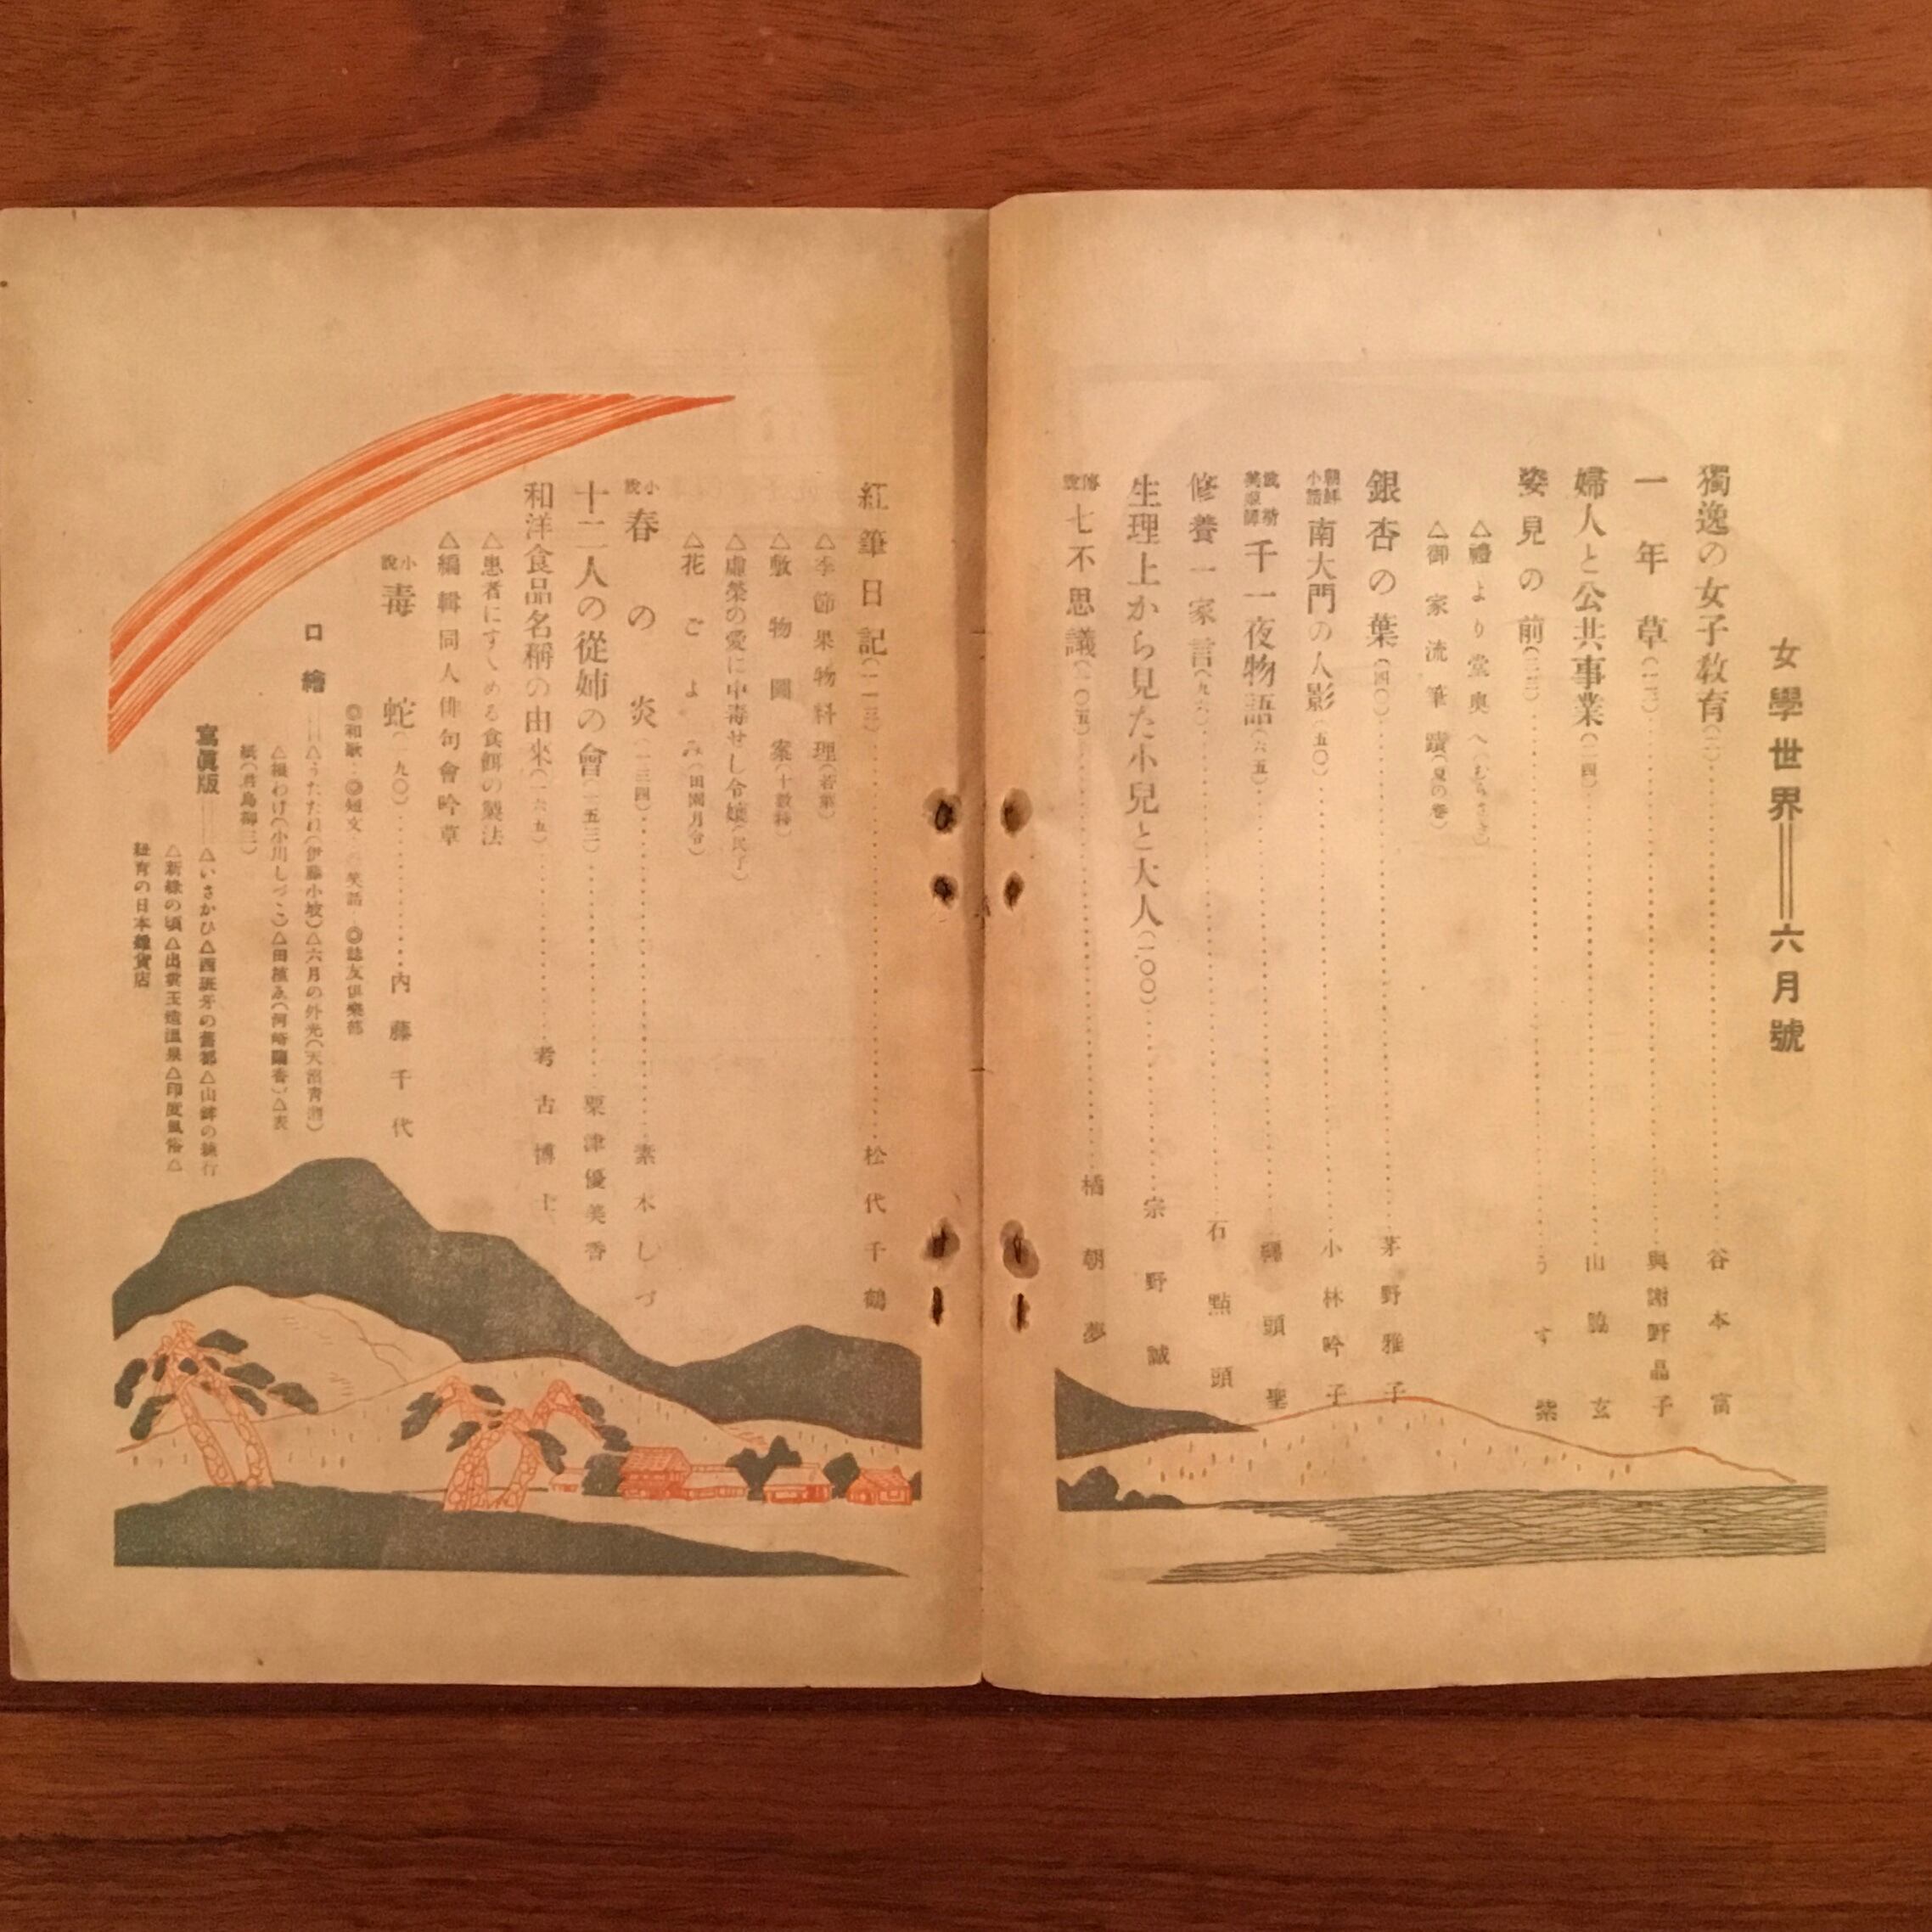 女學世界━━六月號
獨逸の女子教育(二)……谷本富
一年草(一二)……與謝野晶子
婦人と公共事業(二四)……山脇玄
姿見の前(三三)……うす紫
△禮より堂奥へ(むらさき)
△御家流筆蹟(夏の巻)
銀杏の葉(四〇)……茅野雅子
朝鮮小話 南大門の人影(五〇)……小林吟子
千一夜物語(六五)……頭聖
修養一家言(九六)……石點頭
生理上から見た小兒と大人(一〇〇)……宗野誠
傳說 七不思議(一〇五)……橘朝夢
紅筆日記(一二三)……松代千鶴
△季節果物料理(若葉)
△敷物圖案(十數種)
△虛榮の愛に中毒せし令孃(民子)
△花ごよみ(田園月令)
小說 春の炎(一三四)……素木しづ
十二人の從姉の會(一五三)……粟津優美香
和洋食品名稱の由來(一六五)……考古博士
△患者にすゝめる食餌の製法
△編輯同人俳句會吟草
小說 毒蛇(一九〇)……内藤千代
◎和歌・◎短文・◎笑話・◎誌友倶樂部
口繪━━△うたたね(伊藤小坡)△六月の外光(天沼青潮)
△機わけ(小川しづこ)△田植ゑ(河崎蘭香)△表
紙(君島柳三)
寫眞版━━△いさかひ△西班牙の舊都△山姥の練行
△新綠の頃△出雲玉造溫泉△印度風俗△
紐育の日本雜貨店